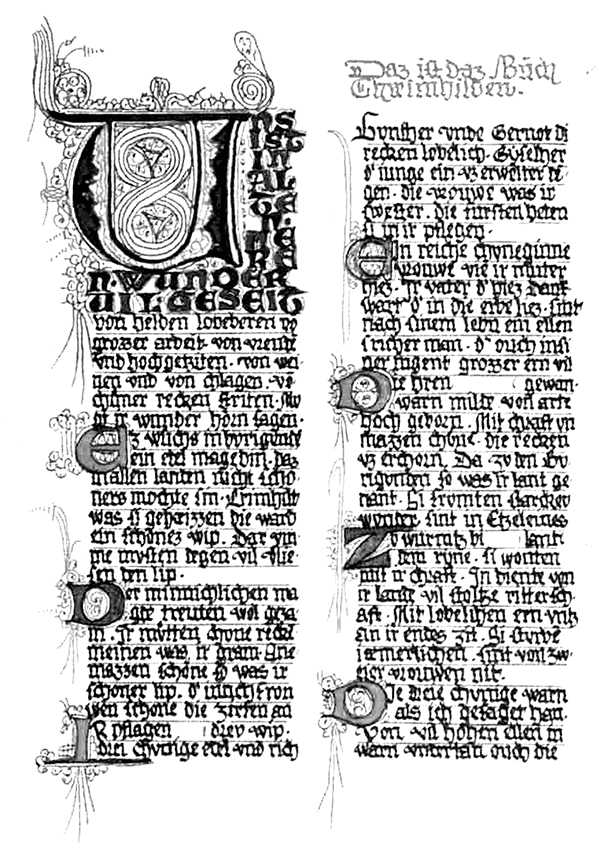 UNS
IST
IN
ALT
EN
MERE
N. WUNDER
UIL GESEIT
von helden lobeberen vō
grozzer arbeit. von vreude
vnd hochgeziten. von wei
nen vnd von chlagen. vō
chuner recken striten. Mv
gt ir wunder horn sagen.
Ez wuchs in bvrigunde
ein etel magedin. daz
in allen lanten nicht scho
ners mochte sin. Crimhilt
was si geheizzen die ward
ein schonez wip. Dar vm
me mvsten degen. vil vlie
sen den lip.
Der minnichlichen ma
gde treuten wol geza
m. Ir mvtten chune reckē
meinen was ir gram. Ane
mazzen schone so was ir
schoner lip. d' iuncfron
wen schone die zirten an
Ir pflagen drey wip.
drei chunige etel vnd rich
Daz ist daz Buch
Chreimhilden.
Gvnther vnde Gernot di
recken lobelich. Gyselher
d' iunge ein vz erwelter te
gen. die vrouwe was ir
swester. die fursten heten
si in ir pflegen.
Ein reiche chuneginne
vrouwe vte ir muter
hiez. Ir vater d' hiez Dank
wart d' in die erbe liez. sint
nach sinem lebn ein ellen
s richer man. d' ouch in si
ner iugent grozzer ern vil
Die hren gewan.
warn milde von arte
hoch geborn. Mit chraft vn
mazzen chune. die recken
vz erchorn. Da zv den bv
rigonden so was ir lant ge
nant. Si frvmten starckev
wonder. sint in Etzelenes
Zo wurmtz bi lant
dem ryne. si wonten
mit ir chraft. In diente von
ir lande vil stoltze rittersch
aft. Mit lobelichen ern vntz
an ir endes zit. Si sturbe
iemerlichen. sint von zw
eier vrouwen nit.
Die dreie chunige warn
als ich gesaget han.
Von vil hohen ellen in
warn vntertan ouch die